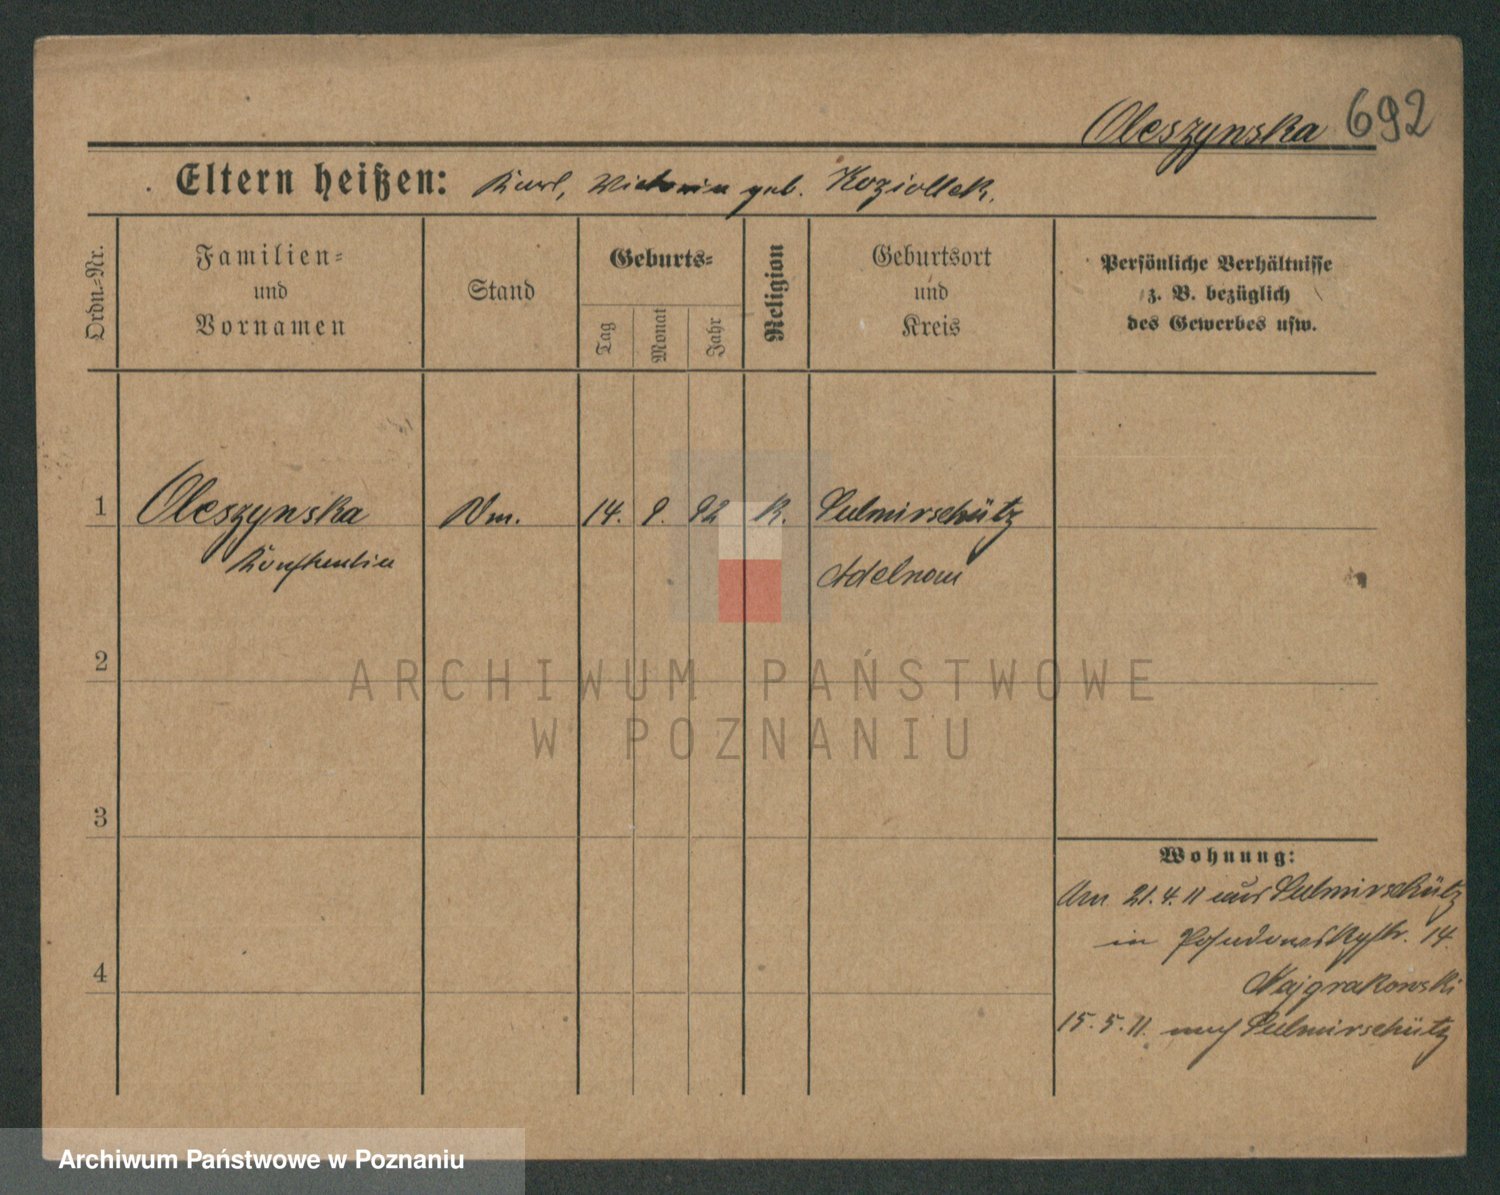 Oleszynska 692
Eltern heißen: Karl, Victoria geb. Koziollek.
Ordn.-Nr.
Familien-
und
Vornamen
Stand
Geburts-
Tag
Monat
Jahr
Religion
Geburtsort
und
Kreis
Persönliche Verhältnisse
z. B. bezüglich
des Gewerbes usw.
1 Oleszynska 14. 9. 92 K. Sulmirschütz
Konstantia Adelnau
2
ARCHIWUM PAŃSTWOWE
W POZNANIU
3
Wohnung:
Am 21.4.11 aus Sulmirschütz
in 14.
4
Majgrakowski
15.5.11. nach Sulmirschütz
Archiwum Państwowe w Poznaniu